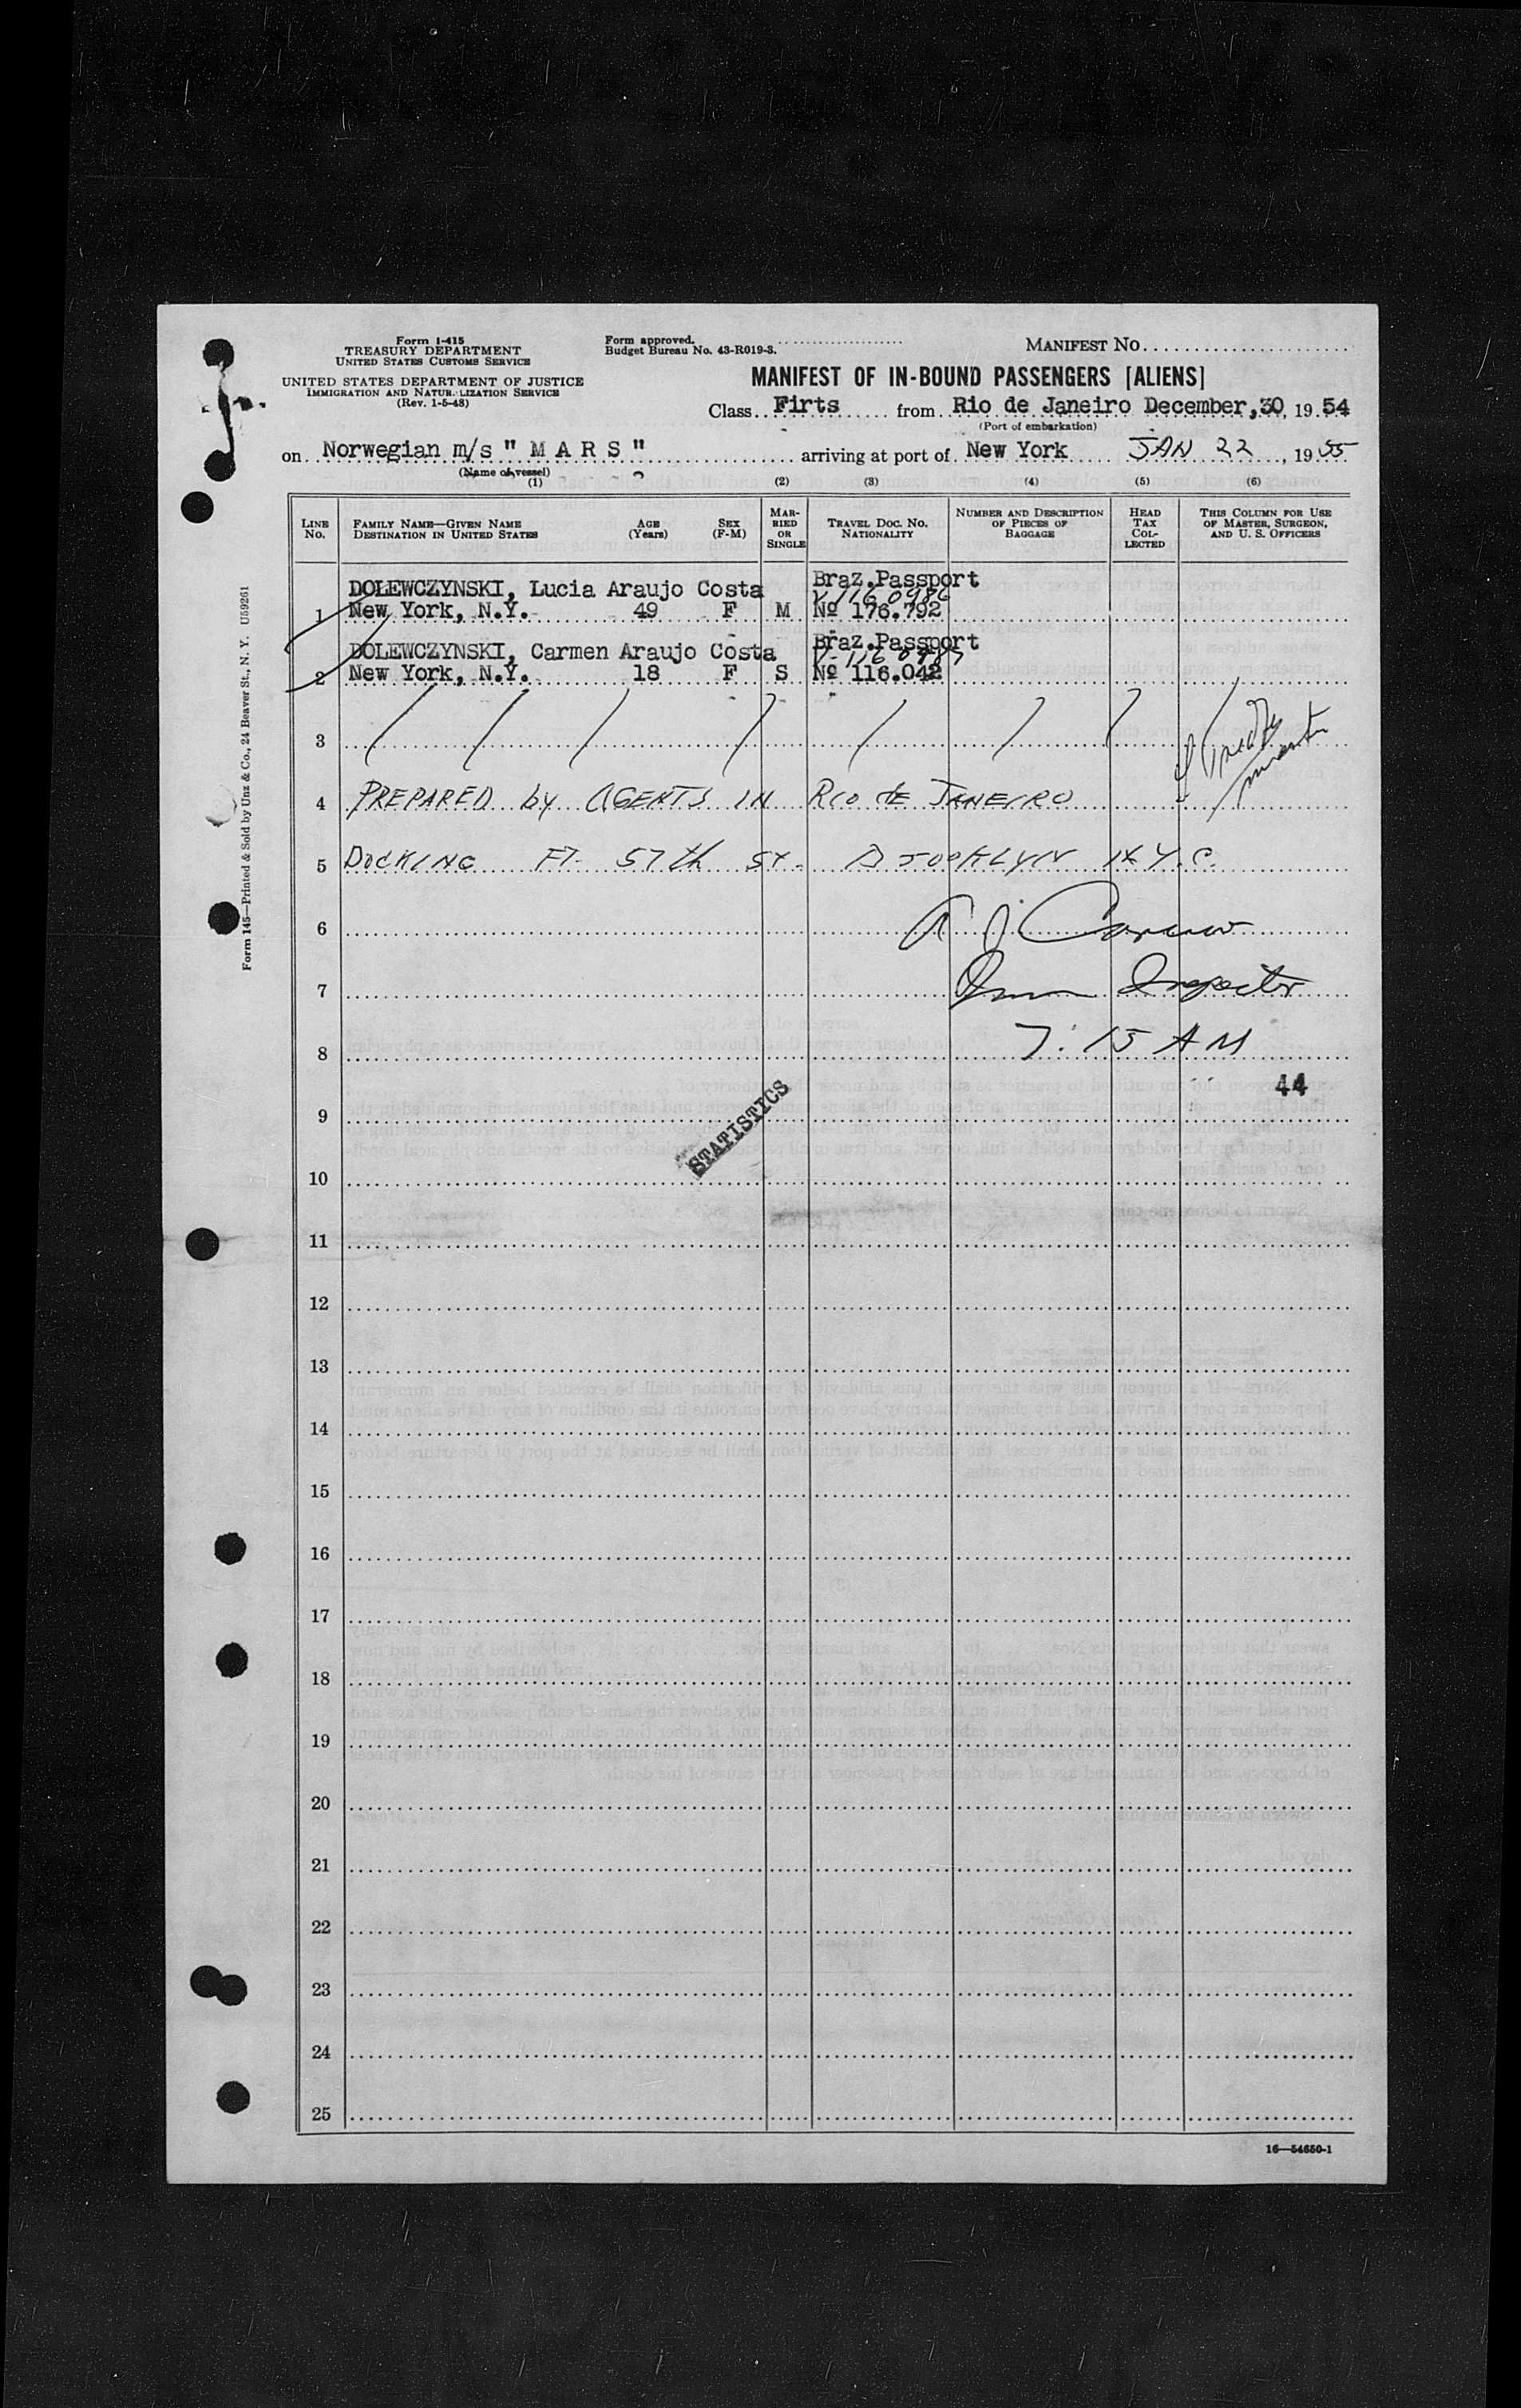 Form I-415
TREASURY DEPARTMENT
UNITED STATES CUSTOMS SERVICE
UNITED STATES DEPARTMENT OF JUSTICE
IMMIGRATION AND NATURALIZATION SERVICE
(Rev. 1-5-48)
Form approved.
Budget Bureau No. 43-R019-3.
MANIFEST NO.
MANIFEST OF IN-BOUND PASSENGERS [ALIENS]
Class Firts from Rio de Janeiro December,30, 19 54
(Port of embarkation)
on Norwegian m/s " M A R S " arriving at port of New York JAN 22, 19 55
(Name of vessel)
(1) (2) (3) (4) (5) (6)
LINE NO.
FAMILY NAME—GIVEN NAME
DESTINATION IN UNITED STATES
AGE (Years)
SEX (F-M)
MARRIED OR SINGLE
TRAVEL DOC. NO. NATIONALITY
NUMBER AND DESCRIPTION OF PIECES OF BAGGAGE
HEAD TAX COLLECTED
THIS COLUMN FOR USE OF MASTER, SURGEON, AND U. S. OFFICERS
DOLEWCZYNSKI, Lucia Araujo Costa Braz.Passport
V 1160986
1 New York, N.Y. 49 F M Nº 176.792
DOLEWCZYNSKI, Carmen Araujo Costa Braz.Passport
V-1160987
2 New York, N.Y. 18 F S Nº 116.042
3
master
4 PREPARED by AGENTS IN RIO de JANEIRO
5 DOCKING FT. 57th St. BrooKLYN N.Y.C.
6
7 Imm Inspector
8 7:15 AM
44
9
STATISTICS
10
11
12
13
14
15
16
17
18
19
20
21
22
23
24
25
16—54650-1
Form 145—Printed & Sold by Unz & Co., 24 Beaver St., N. Y. U59261